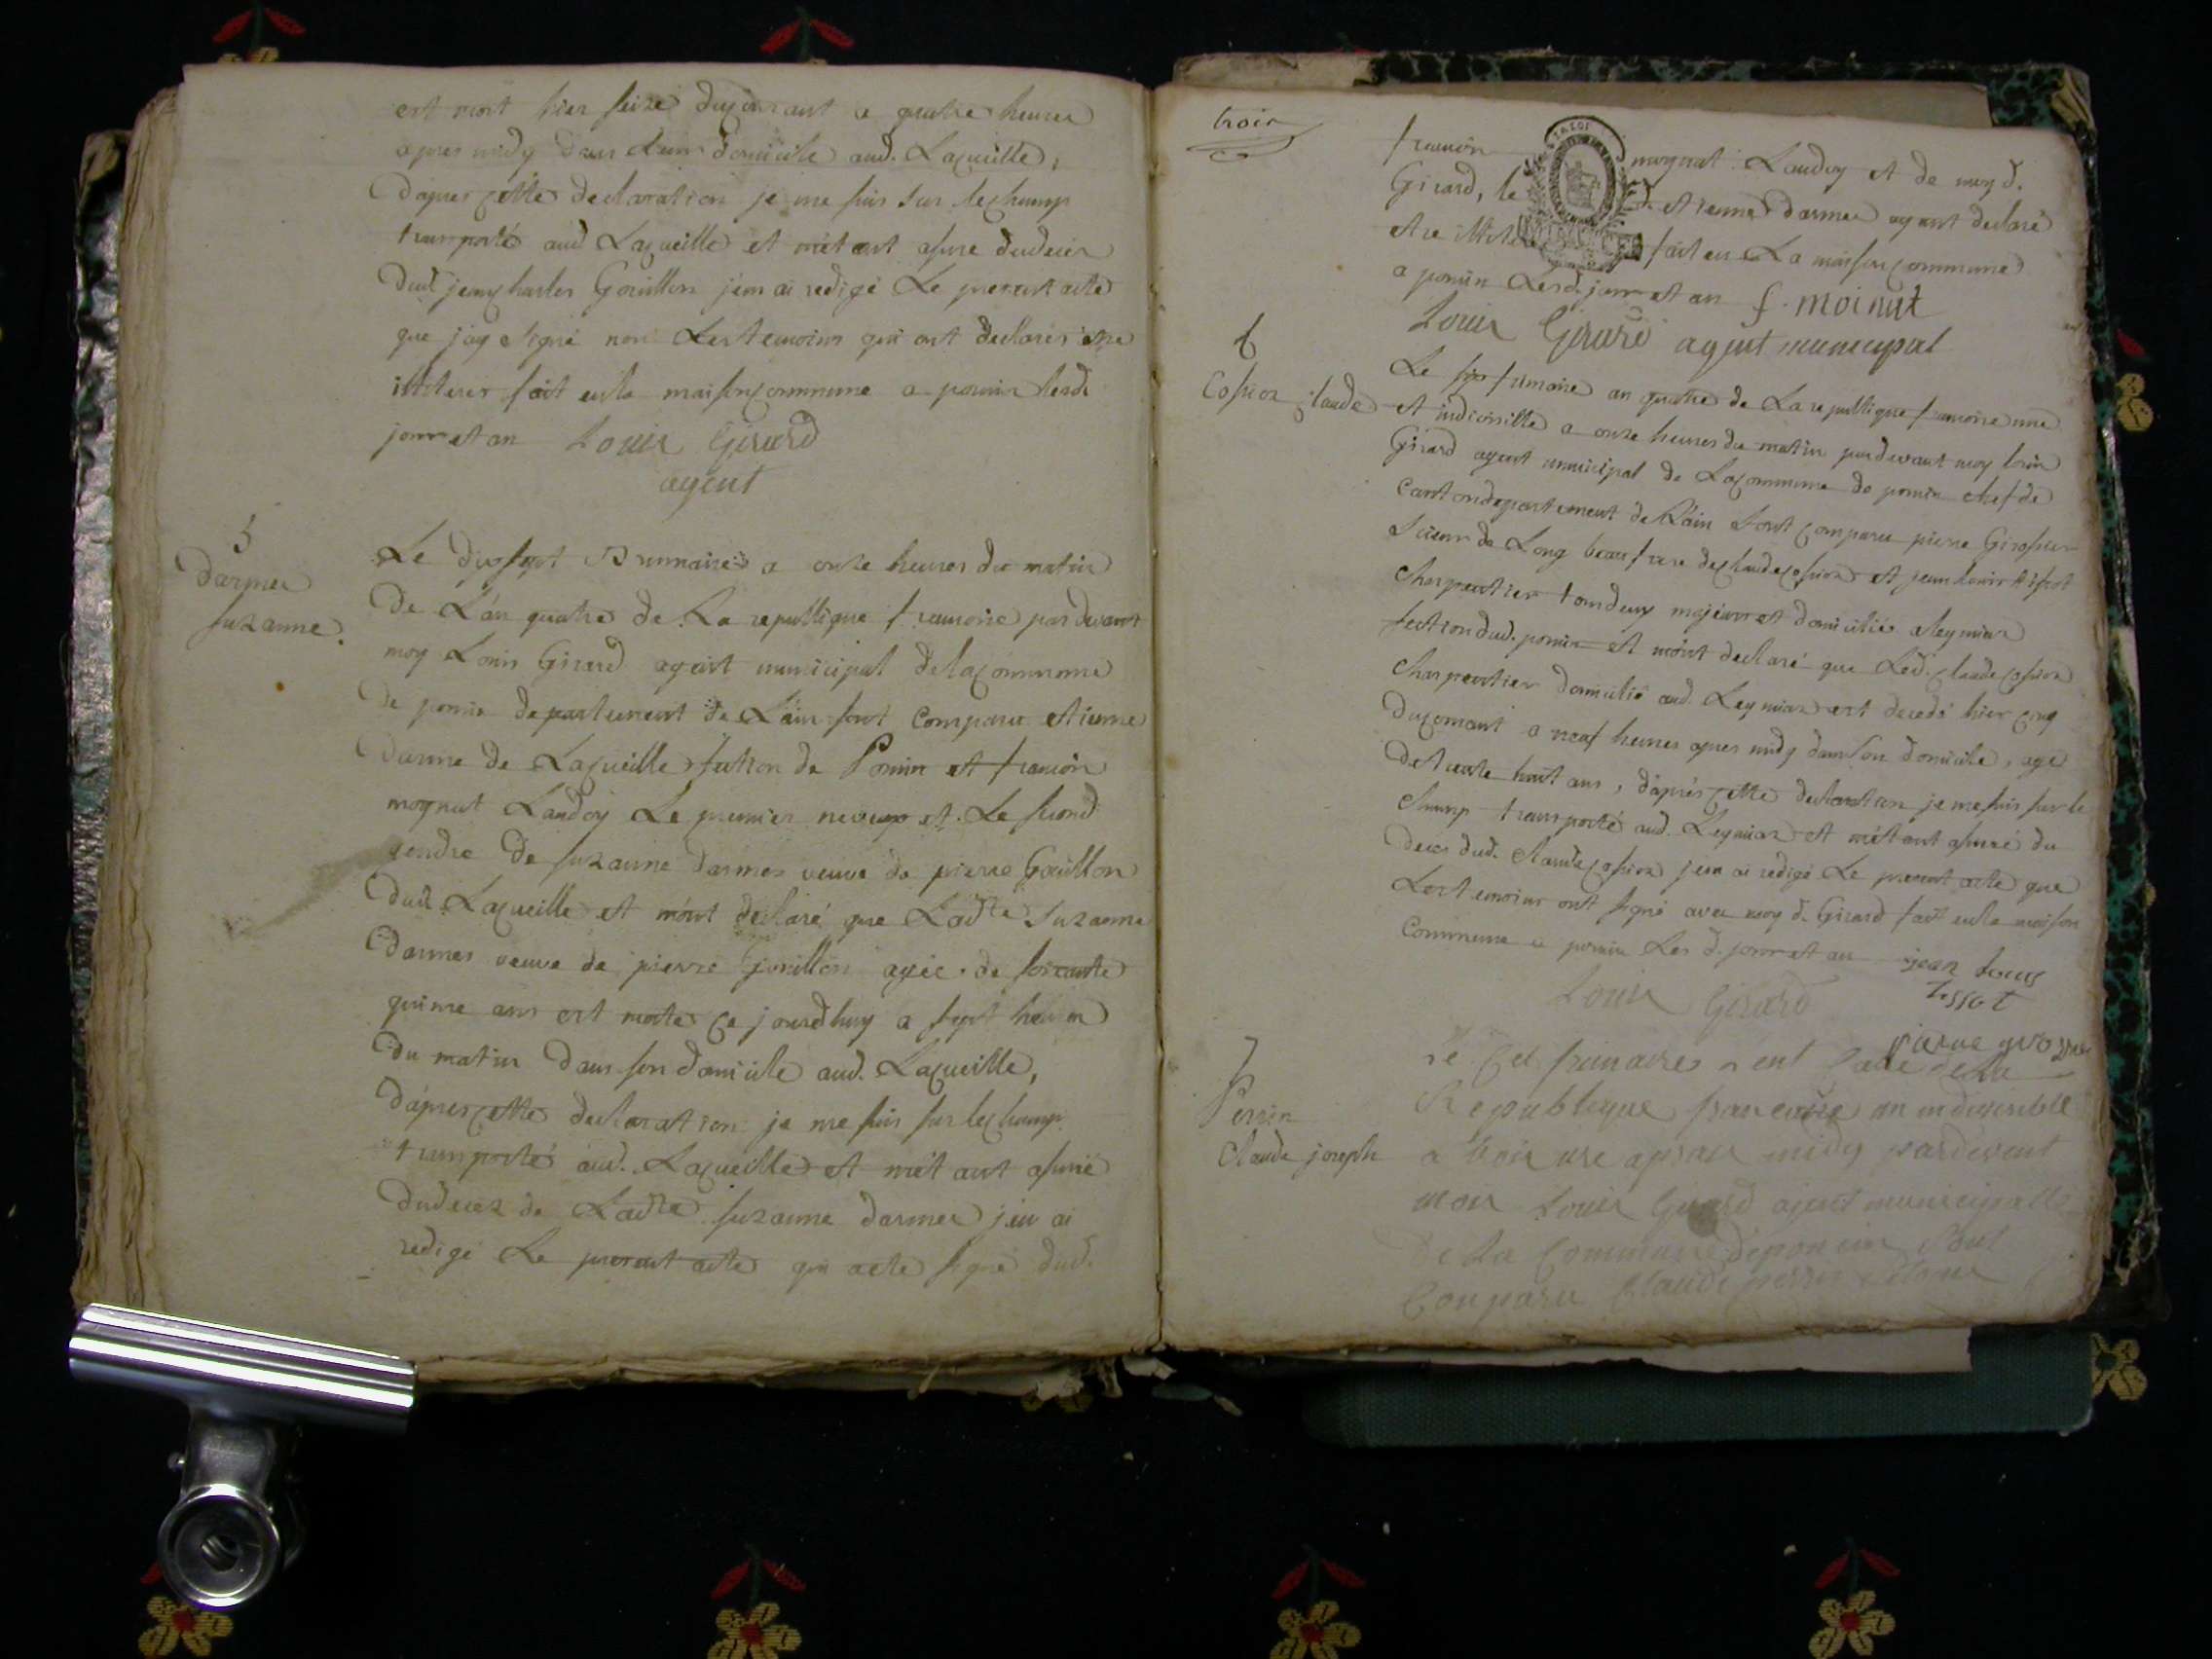 est mort hier seize du courant a quatre heures
apres midy dans leur domicile aud. Lacueille,
D'apres cette declaration je me suis sur le champ
transporté aud Lacueille et m'etant assuré dudeces
dud jean charles Gouillon j'en ai redigé Le present acte
que j'ay signé non Les temoins qui ont declarés être
illiterés fait en la maison commune a poncin lesd.
jour et an Louis Girard
agent
5
Darmes
suzanne.
Le dix sept Brumaire a onze heures du matin
De L'an quatre de La republique francoise pardevant
moy Louis Girard agent municipal de la commune
De poncin departement de L'ain sont comparu etienne
Darme de Lacueille section de Poncin et francois
moynat Landoy Le premier neveux et Le second
gendre de suzanne darmes veuve de pierre Gouillon
Dud. Lacueille et m'ont declaré que Ladte suzanne
Darmes veuve de pierre gouillon agée de soixante
quinze ans est morte ce jourdhuy a sept heures
Du matin dans son domicile aud. Lacueille,
D'apres cette declaration je me suis sur le champ
transporté aud. Lacueille et m'etant assuré
dudeces de Ladte suzanne darmes j'en ai
redigé Le present acte qui a eté signé dud.
trois
francois moynat Landoy et de moy d.
Girard, le d. etienne darmes ayant declaré
etre illiteré fait en La maison commune
a poncin Lesd. jour et an f. moinat
Louis Girard agent municipal
6
Cosson claude
Le six frimaire an quatre de La republique francoise une
et indivisible a onze heures du matin pardevant moy louis
Girard agent municipal de La commune de poncin chef de
canton departement de L'ain sont comparu pierre
scieur de Long beau frere de claude et jean louis tissot
charpentier tous deux majeurs et domiciliés a Leymiaz
section dud. poncin et m'ont declaré que Led. claude
charpentier domicilié aud. Leymiaz est decedé hier cinq
du courant a neuf heures apres midy dans son domicile, agé
de trente huit ans, d'aprés cette declaration je me suis sur le
champ transporté aud. Leymiaz et m'etant assuré du
deces dud. claude j'en ai redigé Le present acte que
Les temoins ont signé avec moy d. Girard fait en la maison
commune a poncin Les d. jour et an jean louis
tissot
Louis Girard
pierre
7
Perrin
Claude joseph
frimaire de la
Republique francoise un indivisible
a trois ure apraes midy pardevant
moir Louis Girard ajent municipalle
de La Commune de poncin sont
Conparu Claude perrin